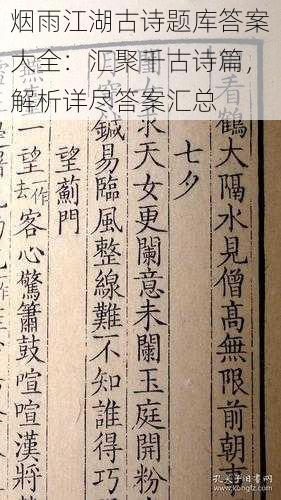 烟雨江湖古诗题库答案
大全：汇聚千古诗篇，
解析详尽答案汇总
看鶴大隔水見僧高無限前朝
七夕
求天女更闌意未闌玉庭開粉
鍼易臨風整線難不知誰得巧
望薊門
一望去作客心驚簫鼓喧喧漢將
孔夫子旧书网
www.kongfz.com